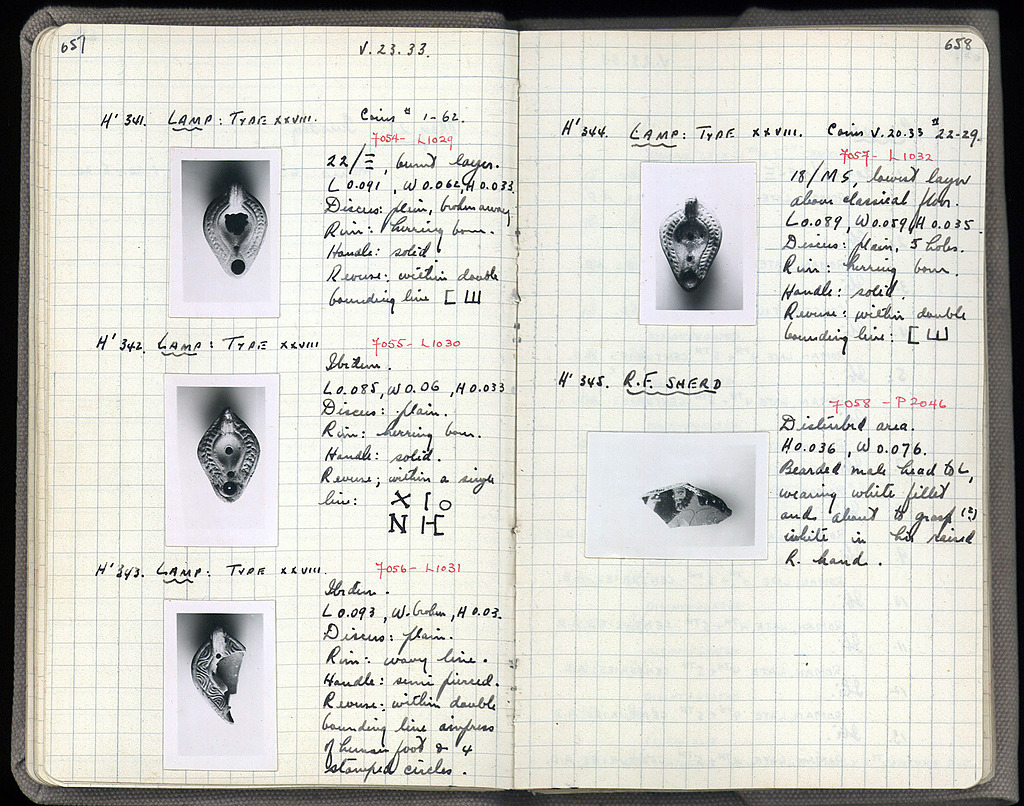 657
V.23.33.
H' 341. LAMP: TYPE XXVIII. Coins # 1-62.
7054 - L1029
22/Ξ, burnt layer.
L 0.091, W 0.062, H 0.033.
Discus: plain, broken away.
Rim: herring bone.
Handle: solid.
Reverse: within double
bounding line [ Ш
H' 342. LAMP: TYPE XXVIII 7055 - L1030
Ibidem.
L 0.085, W 0.06, H 0.033
Discus: plain.
Rim: herring bone.
Handle: solid.
Reverse; within a single
line: X I O
N H C
H' 343. LAMP: TYPE XXVIII. 7056 - L1031
Ibidem.
L 0.093, W. broken, H 0.03.
Discus: plain.
Rim: wavy line.
Handle: semi pierced.
Reverse: within double
bounding line impress
of human foot & 4
stamped circles.
658
H' 344. LAMP: TYPE XXVIII. Coins V.20.33 # 22-29.
7057 - L1032
18/MS, lowest layer
above classical floor.
L 0.089, W 0.059, H 0.035.
Discus: plain, 5 holes.
Rim: herring bone.
Handle: solid.
Reverse: within double
bounding line: [ Ш
H' 345. R.F. SHERD
7058 - P2046
Disturbed area.
H 0.036, W 0.076.
Bearded male head to L,
wearing white fillet
and about to grasp (?)
white in his raised
R. hand.